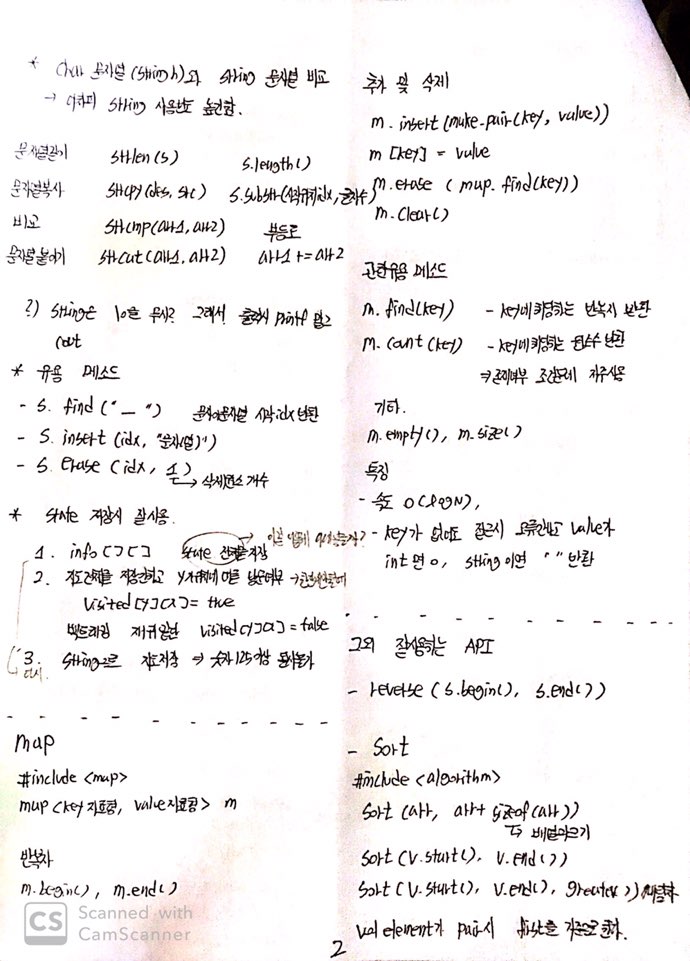 * char 문자열(string.h)와 string 문자열 비교
→ 어차피 string 사용빈도 높긴함.
문자열길이 strlen(s) s.length()
문자열복사 strcpy(des, src) s.substr(시작위치idx, 글자수)
비교 strcmp(arr1, arr2) 부등호
문자열붙이기 strcat(arr1, arr2) arr1 += arr2
?) string은 \0을 무시? 그래서 출력시 printf 말고
cout
* 유용 메소드
- s. find("_") 문자or문자열 시작idx 반환
- s. insert (idx, "문자열")
- s. erase (idx, 1)
↳ 삭제원소 개수
* state 저장시 잘사용.
1. info[][] state 전체를저장 →
2.
visited[y][x] = true
백트래킹 재귀 visited[y][x] = false
3. string으로 지도저장 → 숫자
다시.
map
#include <map>
map<key자료형, value자료형> m
반복자
m.begin(), m.end()
CS Scanned with
CamScanner
추가 및 삭제
m. insert(make-pair(key, value))
m [key] = value
m.erase ( map. find(key))
m. clear()
관련유용 메소드
m. find(key) - key에해당하는 반복자 반환
m. count (key) - key에해당하는 원소수 반환
⇒ 존재여부 조건문에 자주사용
기타.
m. empty(), m. size()
특징
- 속도 O(logN),
- key가 없어도 접근시 오류안나고 value가
int면 0, string이면 " " 반환
그외 잘사용하는 API
- reverse (s.begin(), s.end())
- sort
#include <algorithm>
sort (arr, arr+ sizeof(arr))
↳ 배열아크기
sort (v.start(), v.end())
sort (v.start(), v.end(), greater())
val element가 pair시 first를 기준으로 한다.
2